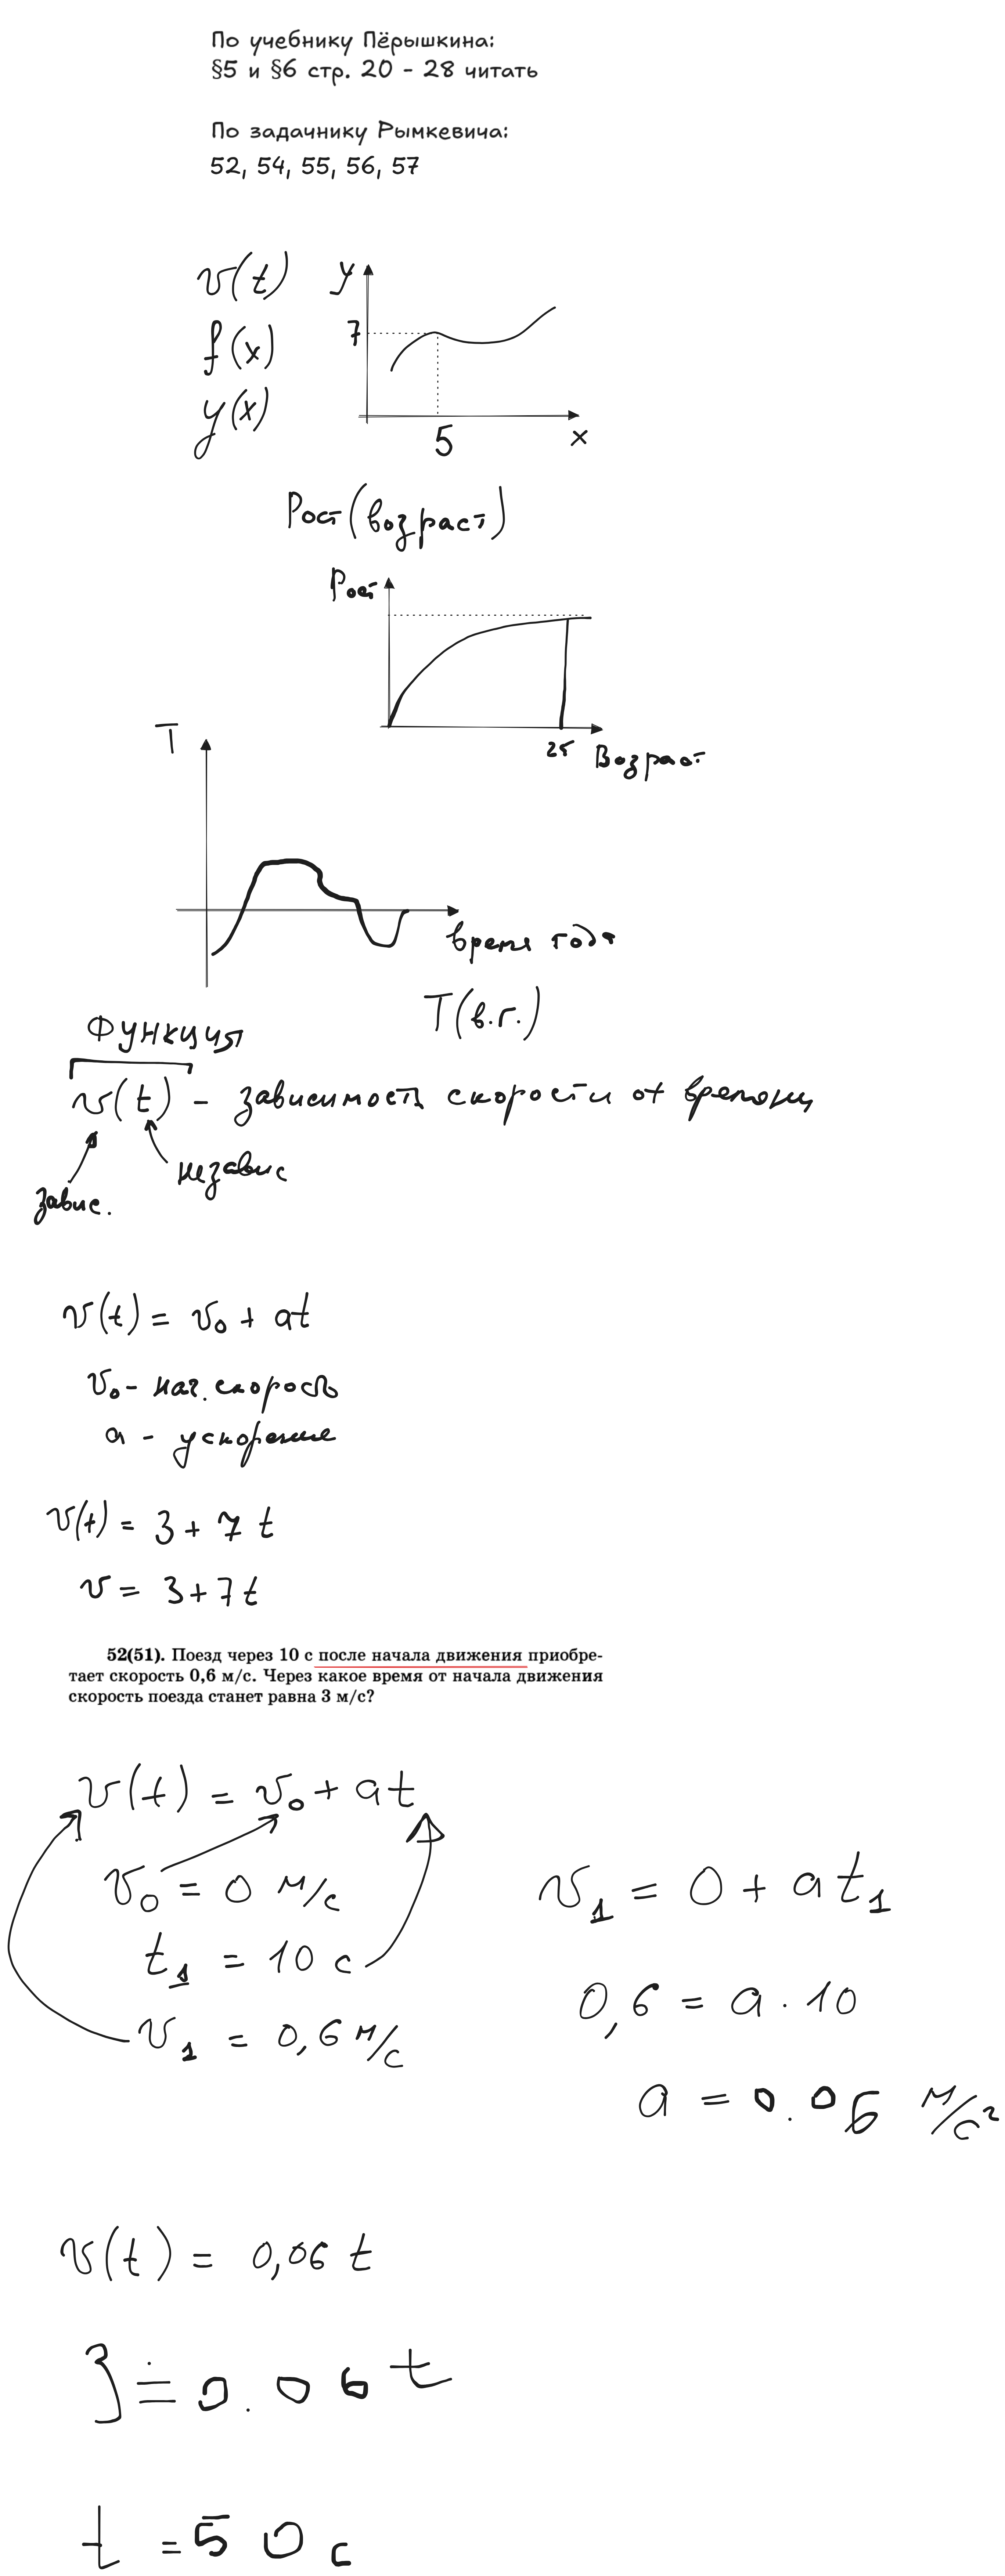 По учебнику Пёрышкина:
§5 и §6 стр. 20 - 28 читать
По задачнику Рымкевича:
52, 54, 55, 56, 57
v(t)
f(x)
y(x)
y
7
5
x
Рост(возраст)
Рост
25
Возраст
T
время года
T(в.г.)
Функция
v(t) - зависимость скорости от времени
независ
завис.
v(t) = v₀ + at
v₀ - нач. скорость
a - ускорение
v(t) = 3 + 7 t
v = 3 + 7 t
52(51). Поезд через 10 с после начала движения приобре-
тает скорость 0,6 м/с. Через какое время от начала движения
скорость поезда станет равна 3 м/с?
v(t) = v₀ + at
v₀ = 0 м/с
t₁ = 10 с
v₁ = 0,6 м/с
v₁ = 0 + at₁
0,6 = a · 10
a = 0.06 м/с²
v(t) = 0,06 t
3 = 0.06 t
t = 50 с